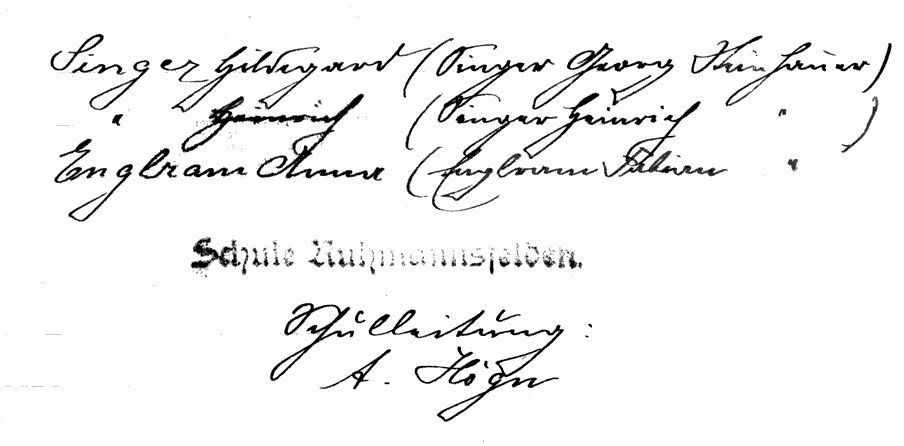 Singer Hildegard (Singer Georg Steinhauer)
" Heinrich (Singer Heinrich " )
Englram Anna (Englram Fabian "
Schule Ruhmannsfelden.
Schulleitung:
A. Högn